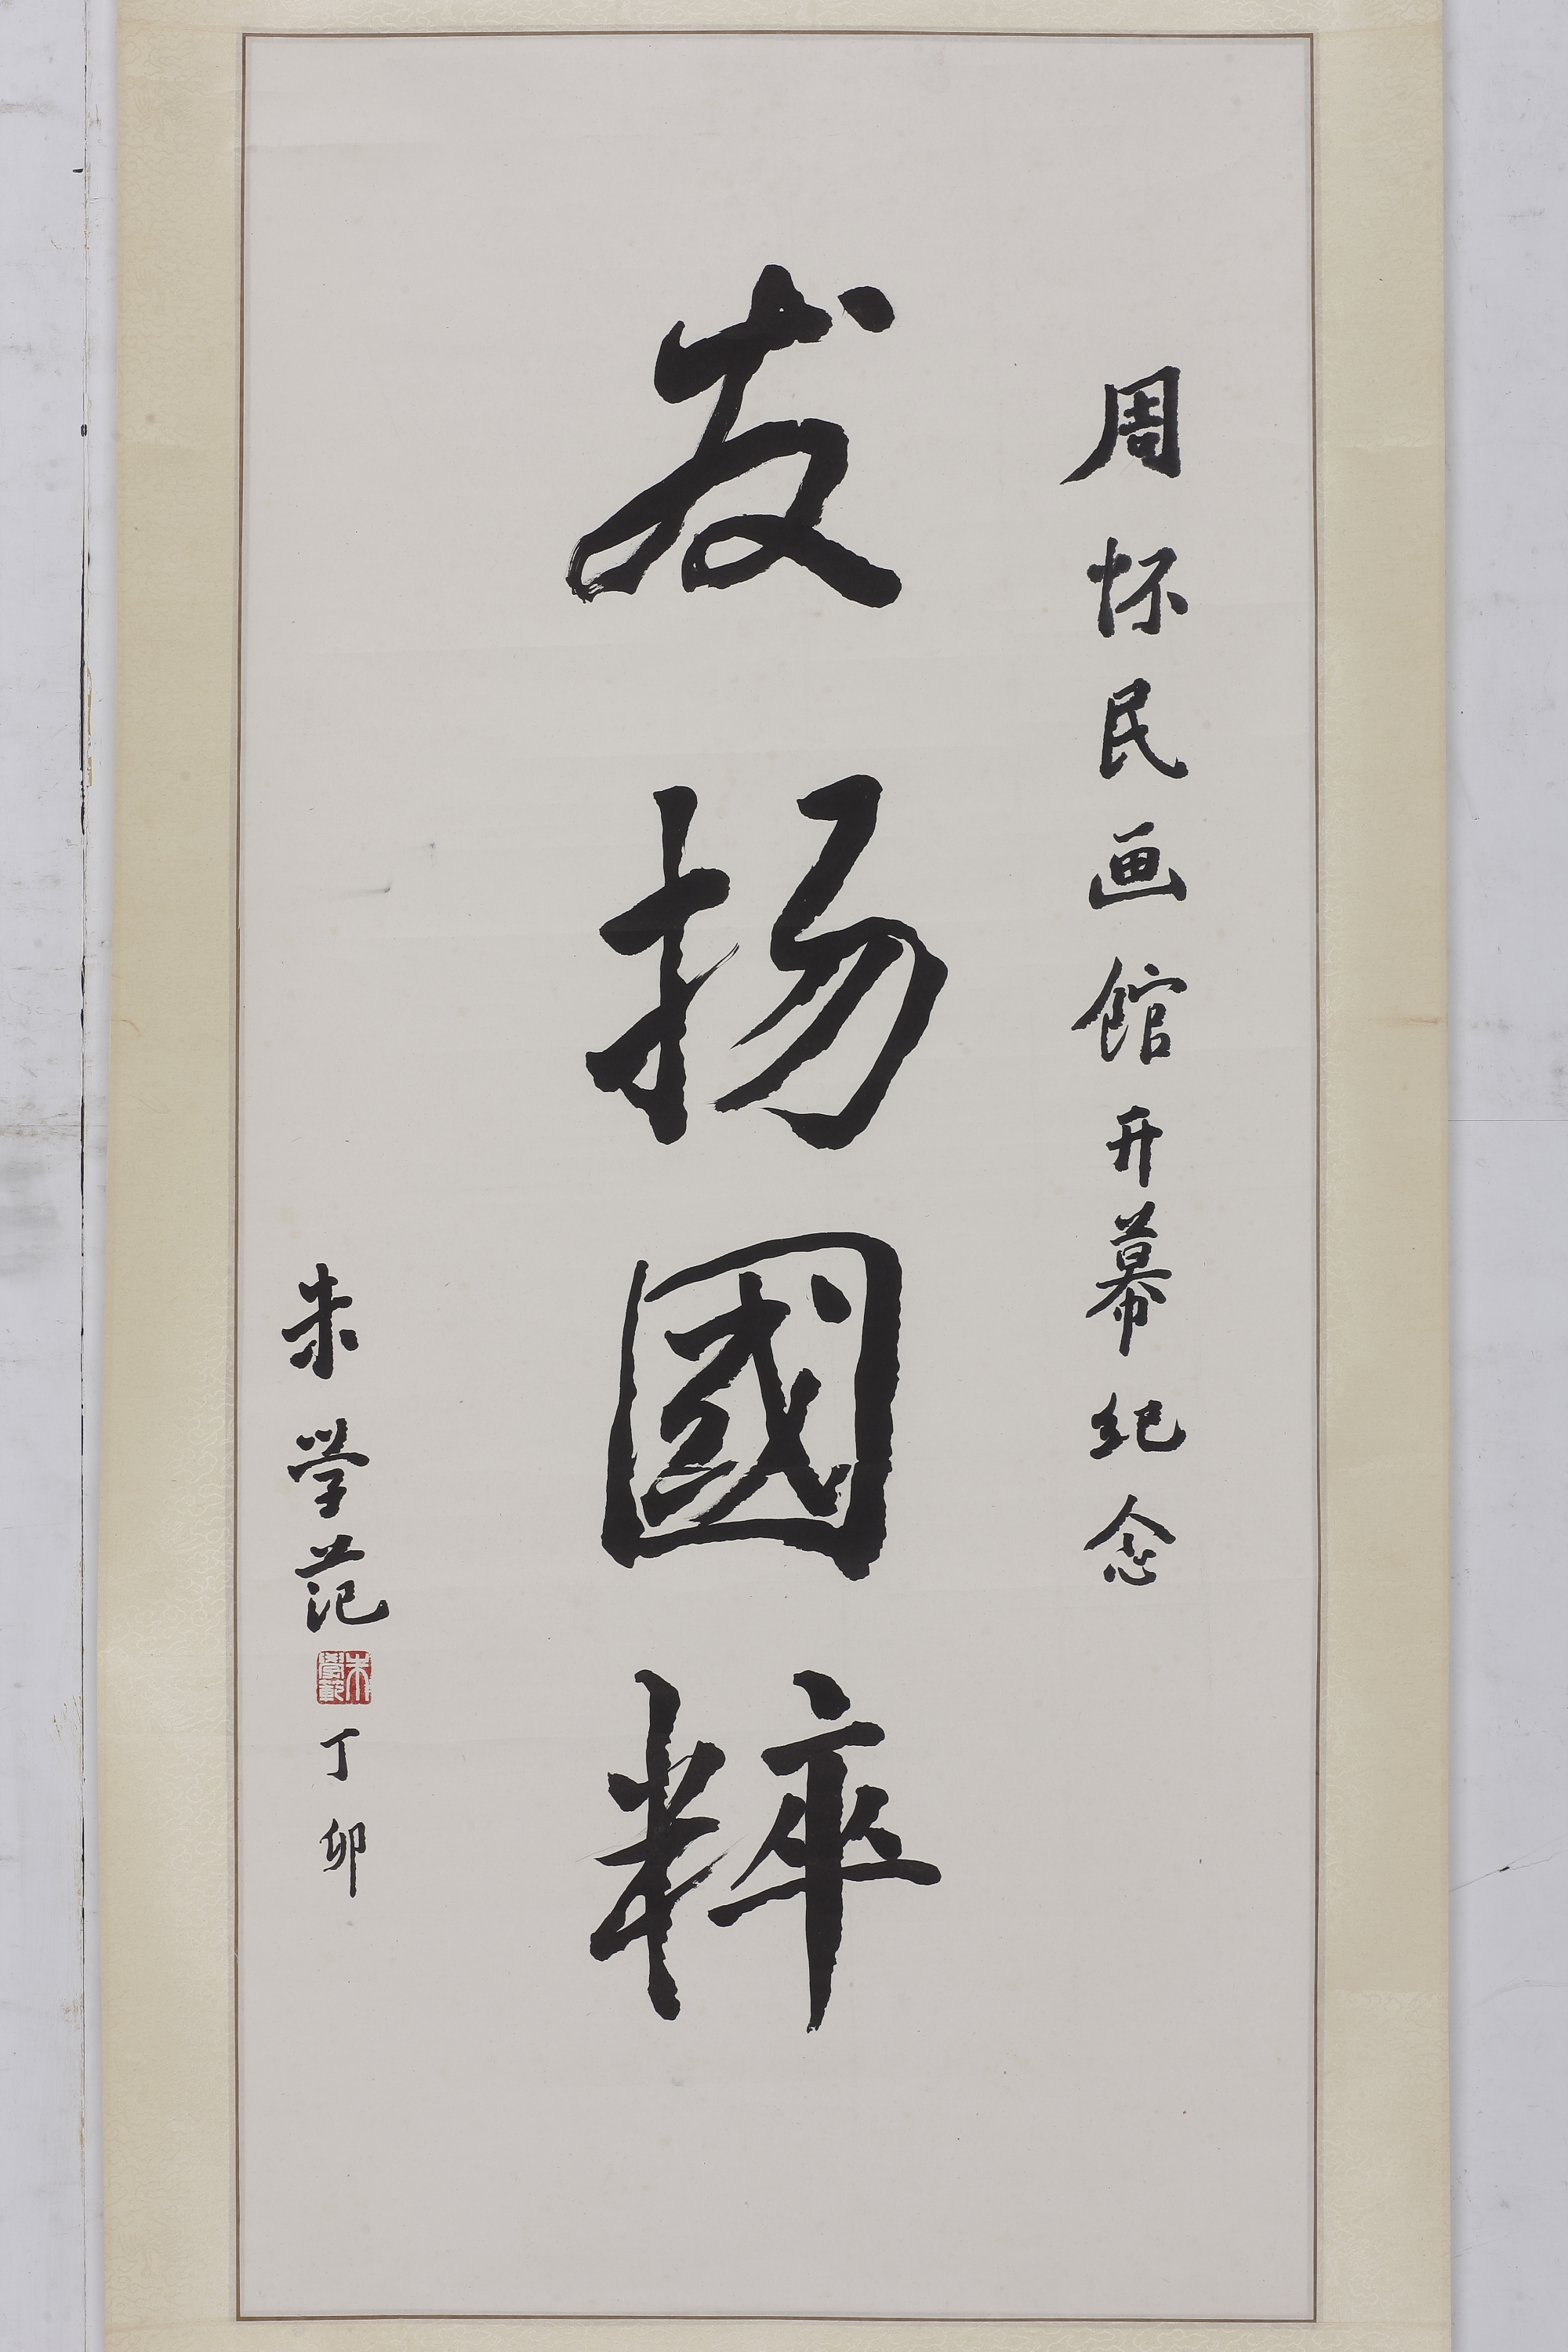 周怀民画馆开幕纪念
发扬國粹
朱学范
朱學範
丁卯